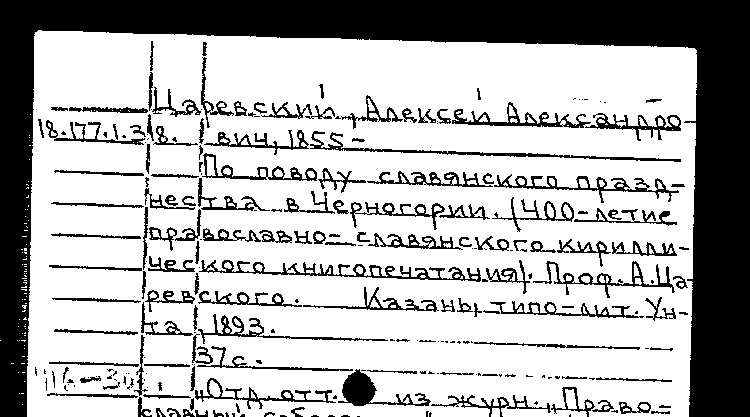 Царевский, Алексей Александро-
18.177.1.318. вич, 1855-
По поводу славянского празд-
нества в Черногории. (400-летие
православно-славянского кирилли-
ческого книгопечатания). Проф. А. Ца-
ревского. Казань, типо-лит. Ун-
та, 1893.
37 с.
„Отд. отт. из журн. „Право-
славный